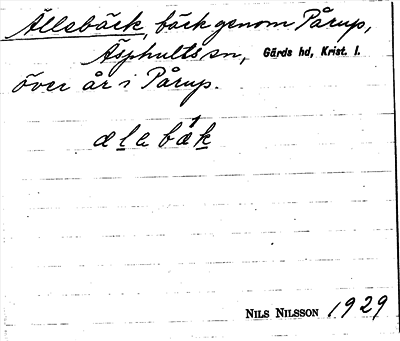 Ällsbäck, bäck genom Pårup,
Äsphults sn, Gärds hd, Krist. l.
över år i Pårup.
ælabæk
NILS NILSSON 1929